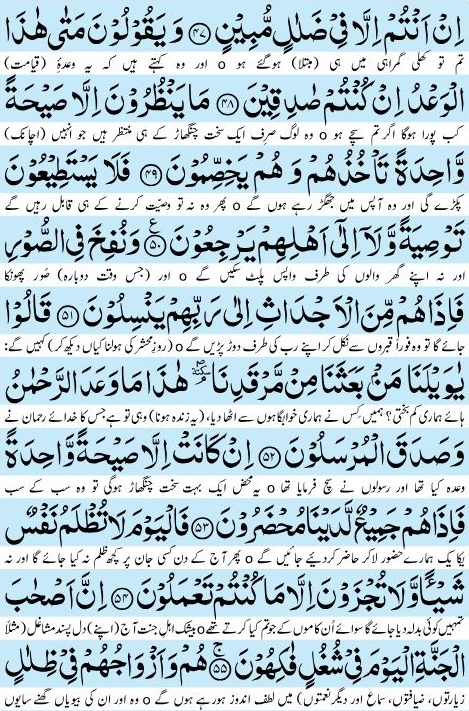 اِنْ اَنْتُمْ اِلَّا فِیْ ضَلٰلٍ مُّبِیْنٍ ﴿۴۷﴾ وَ یَقُوْلُوْنَ مَتٰی هٰذَا
تم تو کھلی گمراہی میں ہی (مبتلا) ہوگئے ہو o اور وہ کہتے ہیں کہ یہ وعدۂ (قیامت)
الْوَعْدُ اِنْ كُنْتُمْ صٰدِقِیْنَ ﴿۴۸﴾ مَا یَنْظُرُوْنَ اِلَّا صَیْحَةً
کب پورا ہوگا اگر تم سچے ہو o وہ لوگ صرف ایک سخت چنگھاڑ کے ہی منتظر ہیں جو انہیں (اچانک)
وَّاحِدَةً تَاْخُذُهُمْ وَ هُمْ یَخِصِّمُوْنَ ﴿۴۹﴾ فَلَا یَسْتَطِیْعُوْنَ
پکڑے گی اور وہ آپس میں جھگڑ رہے ہوں گے o پھر وہ نہ تو وصیّت کرنے کے ہی قابل رہیں گے
تَوْصِیَةً وَّ لَاۤ اِلٰۤی اَهْلِهِمْ یَرْجِعُوْنَ ﴿۵۰﴾ وَ نُفِخَ فِی الصُّوْرِ
اور نہ اپنے گھر والوں کی طرف واپس پلٹ سکیں گے o اور (جس وقت دوبارہ) صُور پھونکا
فَاِذَا هُمْ مِّنَ الْاَجْدَاثِ اِلٰی رَبِّهِمْ یَنْسِلُوْنَ ﴿۵۱﴾ قَالُوْا
جائے گا تو وہ فوراً قبروں سے نکل کر اپنے رب کی طرف دوڑ پڑیں گے o (روزِ محشر کی ہولناکیاں دیکھ کر) کہیں گے:
یٰوَیْلَنَا مَنْۢ بَعَثَنَا مِنْ مَّرْقَدِنَا ۘ هٰذَا مَا وَعَدَ الرَّحْمٰنُ
ہائے ہماری کم بختی! ہمیں کس نے ہماری خوابگاہوں سے اٹھا دیا، (یہ زندہ ہونا) وہی تو ہے جس کا خدائے رحمان نے
وَ صَدَقَ الْمُرْسَلُوْنَ ﴿۵۲﴾ اِنْ كَانَتْ اِلَّا صَیْحَةً وَّاحِدَةً
وعدہ کیا تھا اور رسولوں نے سچ فرمایا تھا o یہ محض ایک بہت سخت چنگھاڑ ہوگی تو وہ سب کے سب
فَاِذَا هُمْ جَمِیْعٌ لَّدَیْنَا مُحْضَرُوْنَ ﴿۵۳﴾ فَالْیَوْمَ لَا تُظْلَمُ نَفْسٌ
یکایک ہمارے حضور لا کر حاضر کر دیئے جائیں گے o پھر آج کے دن کسی جان پر کچھ ظلم نہ کیا جائے گا اور نہ
شَیْـًٔا وَّ لَا تُجْزَوْنَ اِلَّا مَا كُنْتُمْ تَعْمَلُوْنَ ﴿۵۴﴾ اِنَّ اَصْحٰبَ
تمہیں کوئی بدلہ دیا جائے گا سوائے اُن کاموں کے جو تم کیا کرتے تھے o بیشک اہلِ جنت آج (اپنے) دل پسند مشاغل (مثلاً
الْجَنَّةِ الْیَوْمَ فِیْ شُغُلٍ فٰكِهُوْنَ ﴿۵۵﴾ هُمْ وَ اَزْوَاجُهُمْ فِیْ ظِلٰلٍ
زیارتوں، ضیافتوں، سماع اور دیگر نعمتوں) میں لطف اندوز ہو رہے ہوں گے o وہ اور ان کی بیویاں گھنے سایوں